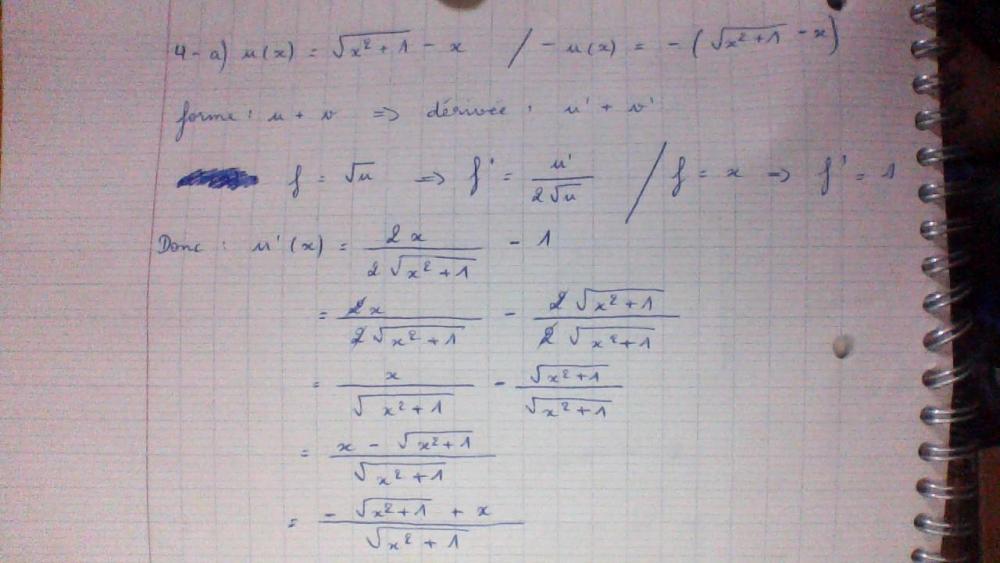 4-a) u(x) = √(x²+1) - x / - u(x) = - (√(x²+1) - x)
forme : u + v => dérivée : u' + v'
f = √u => f' = u'/(2√u) / f = x => f' = 1
Donc : u'(x) = 2x/(2√(x²+1)) - 1
= 2x/(2√(x²+1)) - 2√(x²+1)/(2√(x²+1))
= x/√(x²+1) - √(x²+1)/√(x²+1)
= (x - √(x²+1))/√(x²+1)
= (- √(x²+1) + x)/√(x²+1)